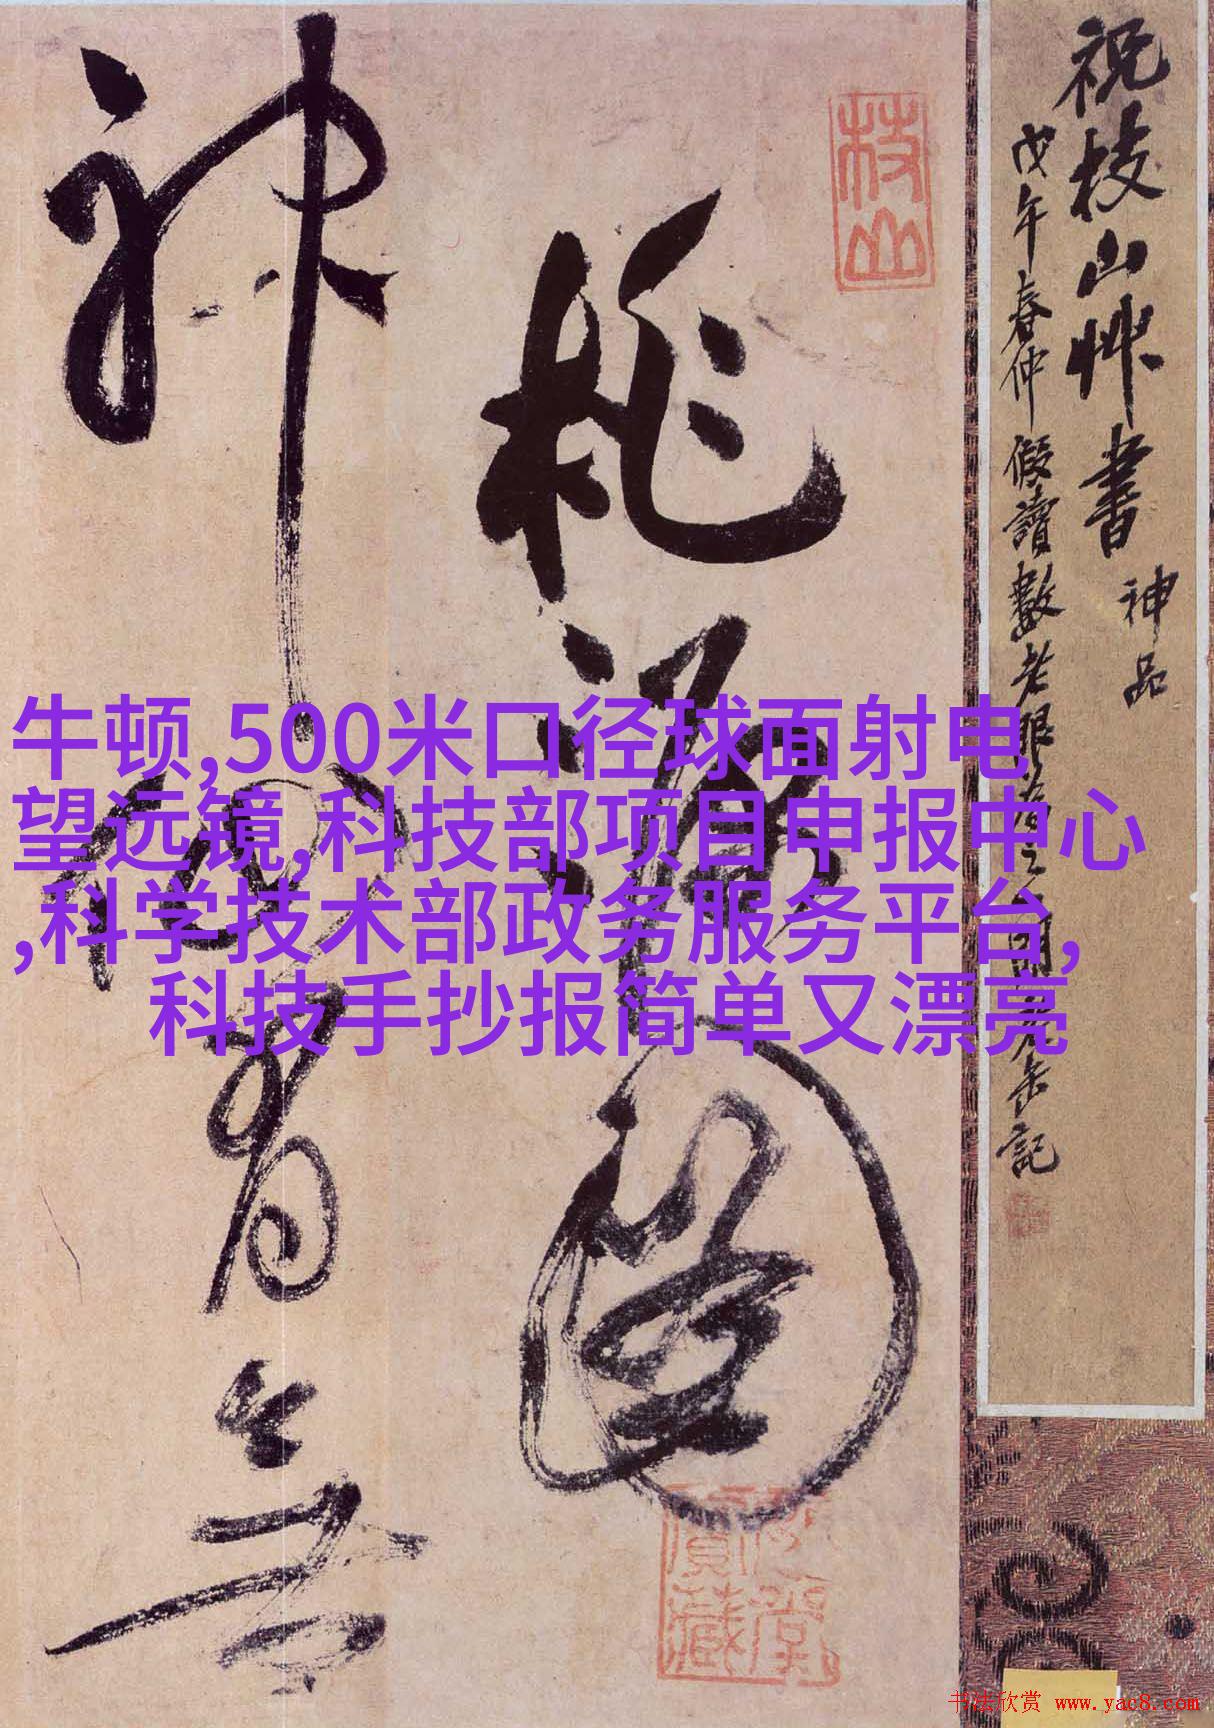 牛顿,500米口径球面射电
望远镜,科技部项目申报中心
,科学技术部政务服务平台,
科技手抄报简单又漂亮
祝枝山艸書 神品
戊午春仲假讀數老眼為之一明老缶記
枝山
桃源圖
神仙有無
书法欣赏 www.yac8.com